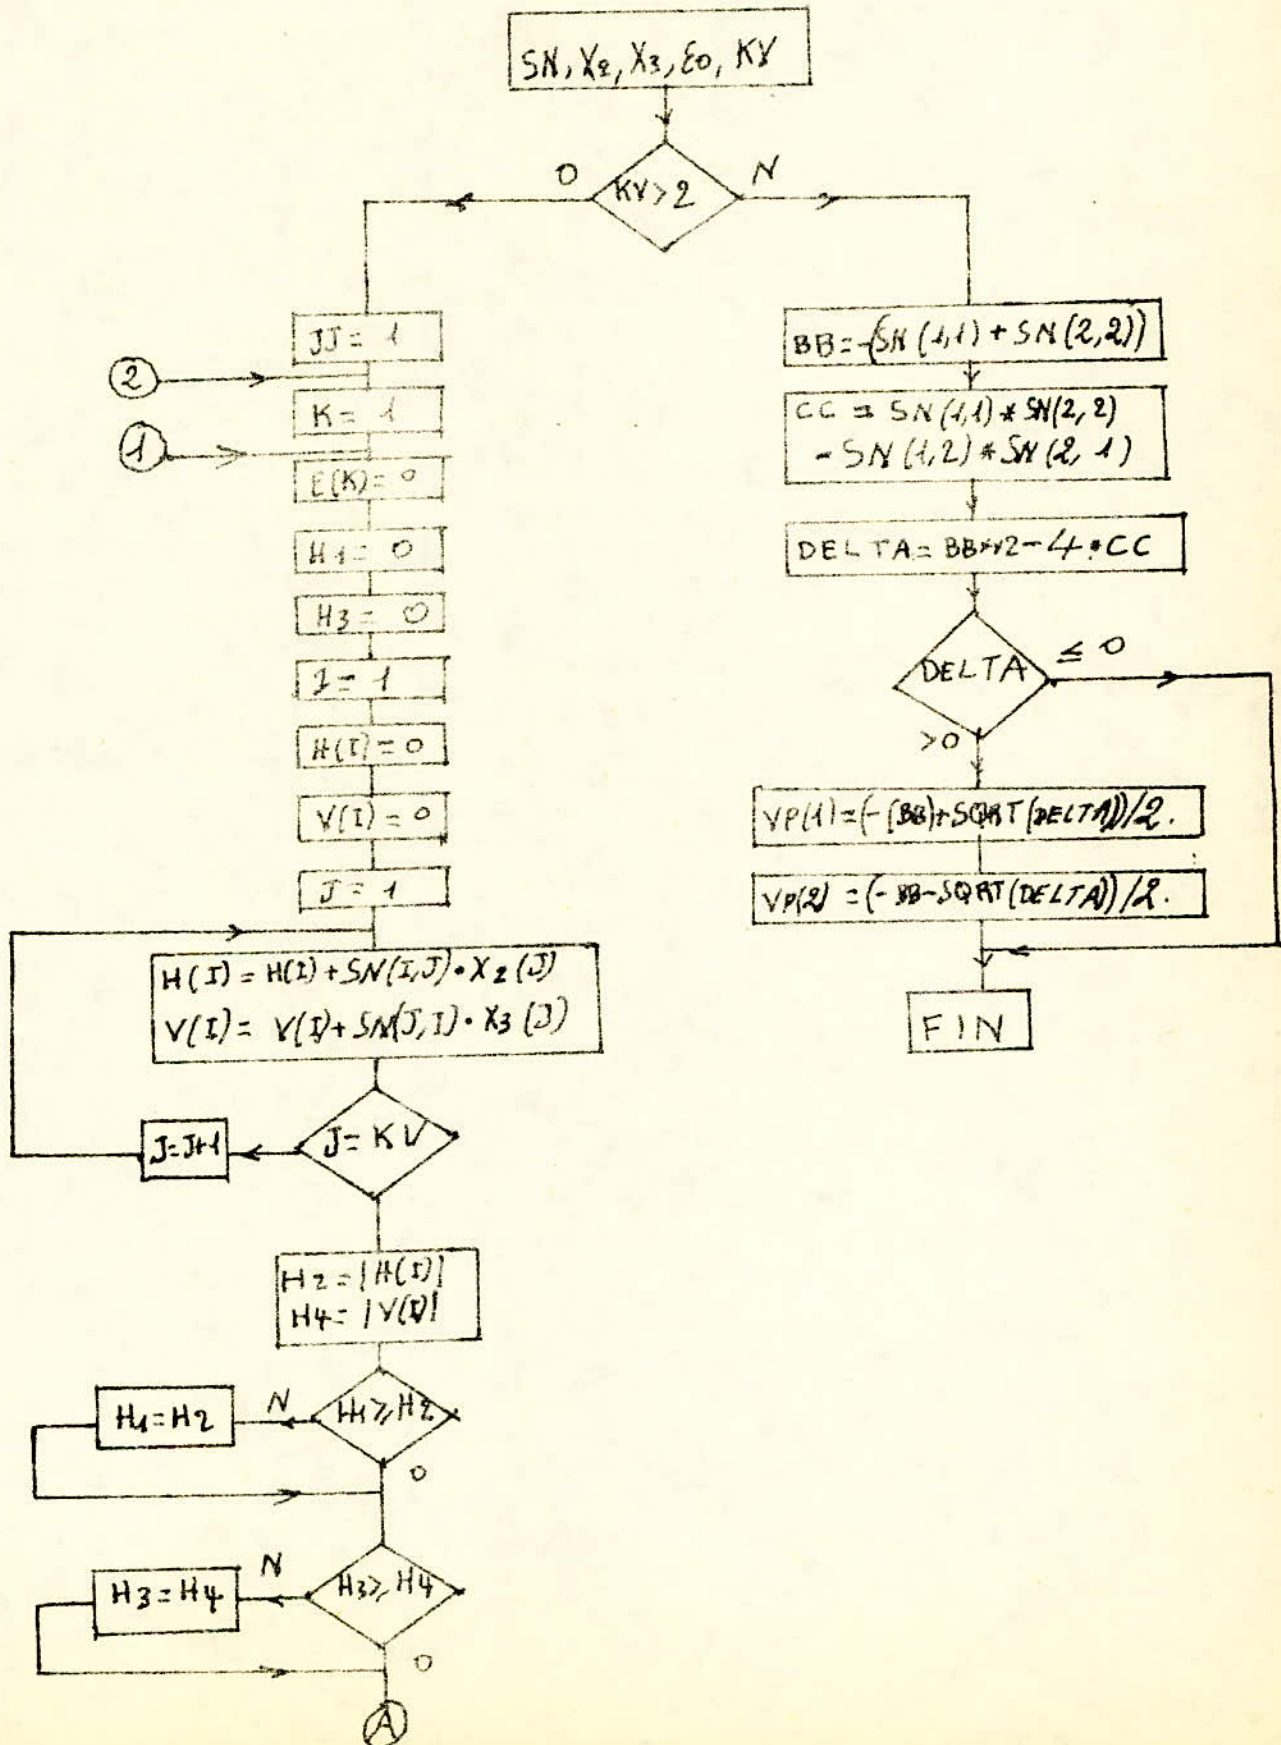 SN, X2, X3, ε0, KV
KV > 2
O
N
JJ = 1
2
K = 1
1
E(K) = 0
H1 = 0
H3 = 0
I = 1
H(I) = 0
V(I) = 0
J = 1
H(I) = H(I) + SN(I,J) • X2(J)
V(I) = V(I) + SN(J,I) • X3(J)
J = KV
J=J+1
H2 = |H(I)|
H4 = |V(I)|
H1 ≥ H2
N
H1 = H2
O
H3 ≥ H4
N
H3 = H4
O
A
BB = -(SN(1,1) + SN(2,2))
CC = SN(1,1) * SN(2,2)
- SN(1,2) * SN(2,1)
DELTA = BB**2 - 4 * CC
DELTA
≤ 0
>0
VP(1) = (-(BB)+SQRT(DELTA))/2.
VP(2) = (-BB-SQRT(DELTA))/2.
FIN